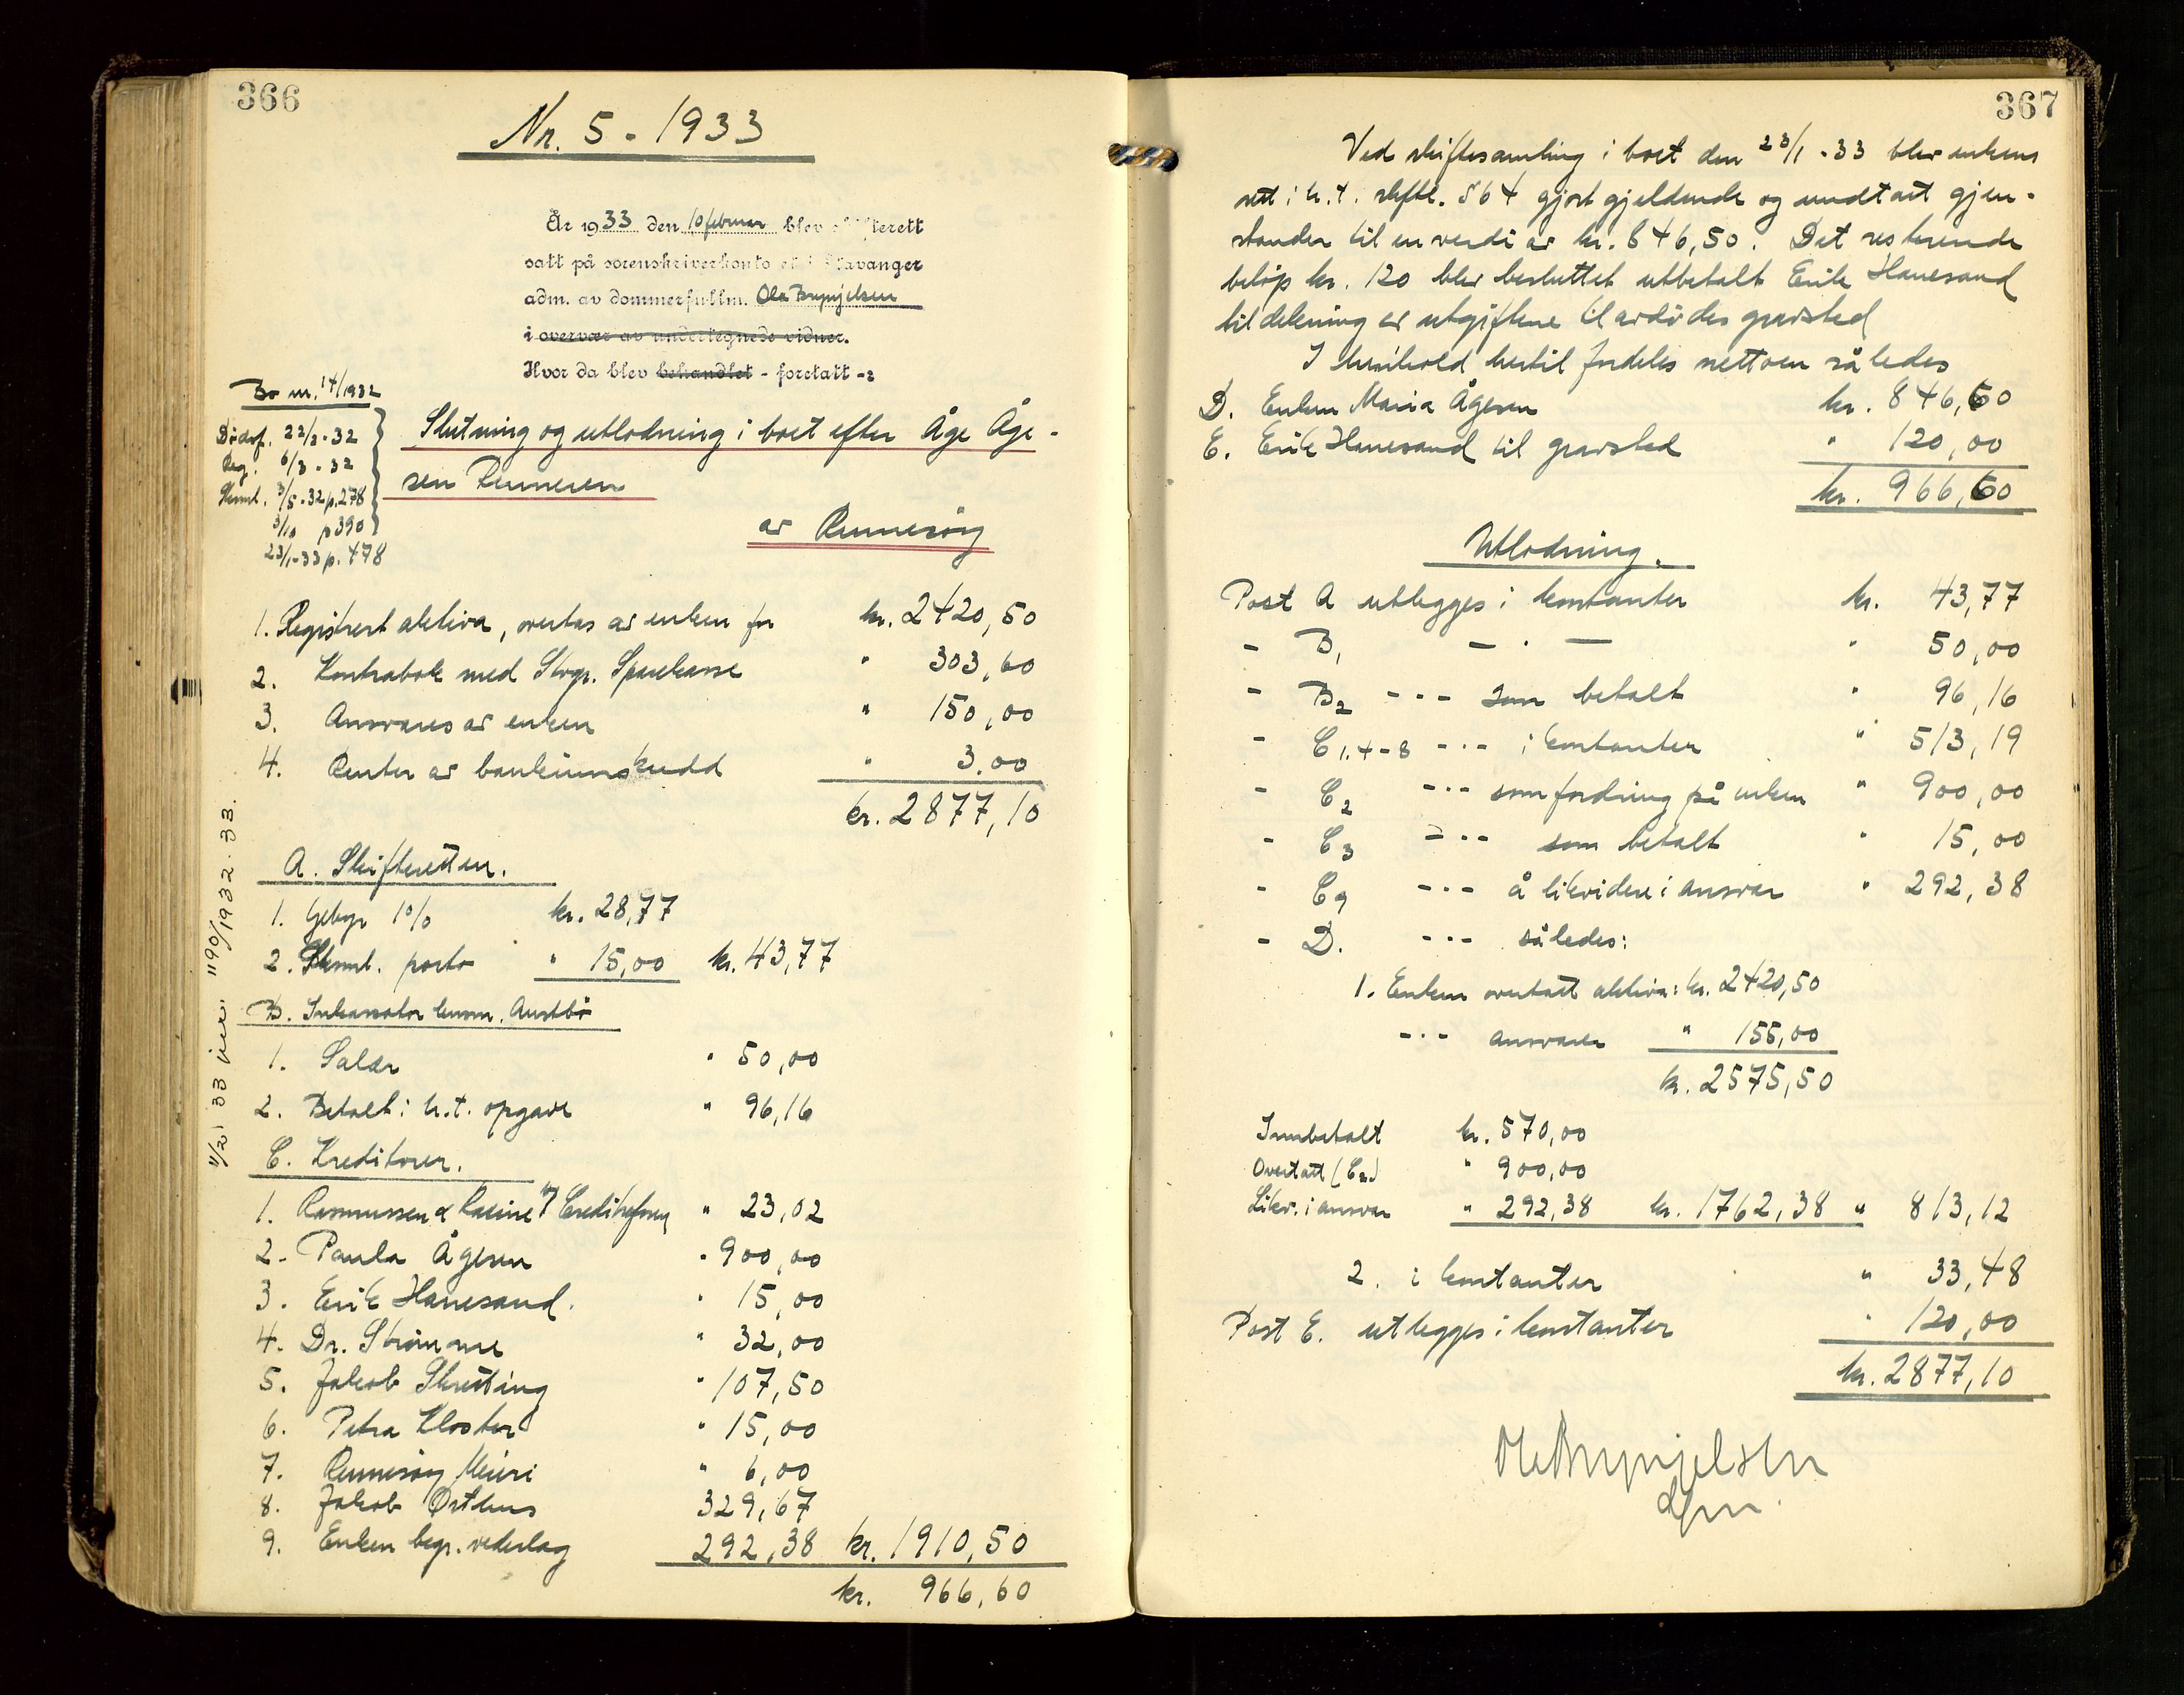 366
Nr. 5 - 1933
År 1933 den 10 februar blev skifterett
satt på sorenskriverkontoret i Stavanger
adm. av dommerfullm. Ole Brynjelsen
i overvær av undertegnede vidner.
Hvor da blev behandlet - foretatt -:
Bo nr. 14/1932
Dødsf. 22/2-32
Reg. 6/3-32
Saml. 3/5-32 p. 278
3/10 p 390
23/1-33 p. 478
Slutning og utlodning i boet efter Åge Åge-
sen Rennesøy
av Rennesøy
1. Registrert aktiva, overtas av enken for kr. 2420,50
2. Kontrabok med Stvgr. Sparekasse " 303,60
3. Ansvares av enken " 150,00
4. Renter av bankinnskudd " 3.00
kr. 2877,10
A. Skifteretten.
1. Gebyr 1% kr. 28,77
2. Skaml. porto " 15,00 kr. 43,77
B. Inkassator lensm. Austbø
1. Salær " 50,00
2. Betalt i h.t. opgave " 96,16
C. Kreditorer.
1. Rasmussen & Racine v/ Creditreform " 23,02
2. Paula Ågesen " 900,00
3. Erik Hanesand. " 15,00
4. Dr. Strømme " 32,00
5. Jakob Skretting " 107,50
6. Petra Kloster " 15,00
7. Rennesøy Meieri " 6,00
8. Jakob Østhus 329,67
9. Enken begr. vederlag 292,38 kr. 1910,50
kr. 966,60
11/2 33 1190/1932-33.
367
Ved skiftesamling i boet den 23/1-33 blev enkens
rett i h.t. skftl. § 64 gjort gjeldende og undtatt gjen-
stander til en verdi av kr. 846,50. Det resterende
beløp kr. 120 blev besluttet utbetalt Erik Hanesand
til dekning av utgiftene til avdødes gravsted
I henhold hertil fordeles nettoen således
D. Enken Maria Ågesen kr. 846,60
E. Erik Hanesand til gravsted " 120,00
kr. 966,60
Utlodning.
Post A utlegges i kontanter kr. 43,77
- B1 - " - " 50,00
- B2 - " - som betalt " 96,16
- C1.4-8 - " - i kontanter " 513,19
- C2 - " - som fordring på enken " 900,00
- C3 - " - som betalt " 15,00
- C9 - " - å likvidere i ansvar " 292,38
- D. - " - således:
1. Enken overtatt aktiva: kr. 2420,50
- " - ansvarer " 155,00
kr. 2575,50
Innbetalt kr. 570,00
Overtatt (C2) " 900,00
Likv. i ansvar " 292,38 kr. 1762,38 " 813,12
2. i kontanter " 33,48
Post E. utlegges i kontanter " 120,00
kr. 2877,10
Ole Brynjelsen
dfm.